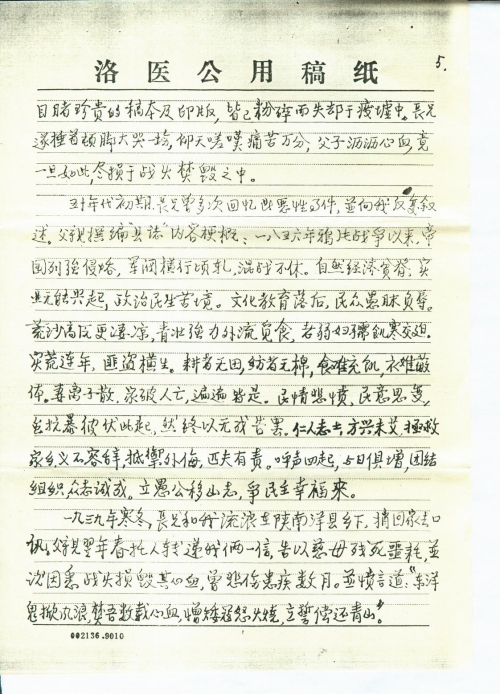 洛医公用稿纸
5.
目睹珍贵的稿本及印版，皆已粉碎而失却于废墟中。長兄
遂捶首顿脚大哭一场，仰天嗟嘆痛苦万分，父子沥沥心血，竟
一旦如此，尽损于战火焚毁之中。
五十年代初期，長兄曾多次回忆此恶性事件，並向我反复叙
述。父親撰编"县誌"内容梗概：一八三六年鸦片战争以来，帝
国列强侵略，军阀横行倾轧，混战不休。自然经济贫脊，实
业无转兴起，政治民生苦境。文化教育落后，民众愚昧负辱。
荒沙高丘更凄凉，青壮强力外流觅食，老弱妇孺飢寒交迫。
灾荒连年，匪盗横生。耕者无田，纺者无棉，食难充飢，衣难蔽
体。妻离子散，家破人亡，遍遍皆是。民情悲愤，民意思变，
抗暴彼伏此起，然终以无成告罢。仁人志士，方兴未艾，拯救
家乡义不容辞，抵禦外侮，匹夫有责。呼声四起，与日俱增，团结
组织，众志诚成。立愚公移山志，争民主幸福来。
一九三九年寒冬，長兄和我流浪在陕南洋县乡下，捎回家去口
讯，父親翌年春托人转递我俩一信，告以慈母残死噩耗，並
次因悉战火损毁其心血，曾悲伤患疾数月。並愤言道："东洋
鬼掀风浪，焚吾数载心血，憎矮冦怒火烧，立誓偿还青山"
002136.9010